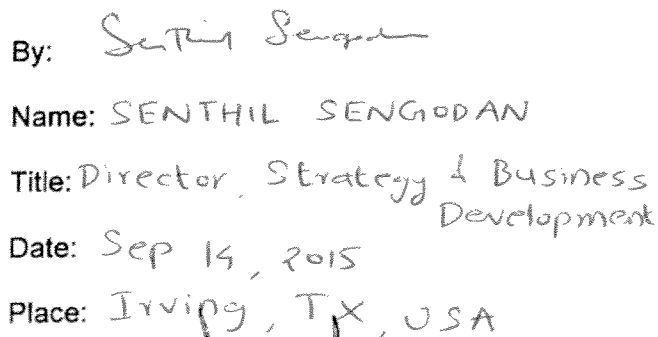 By: Senthil Sengodan
Name: SENTHIL SENGODAN
Title: Director, Strategy & Business
Development
Date: Sep 14, 2015
Place: Irving, TX, USA